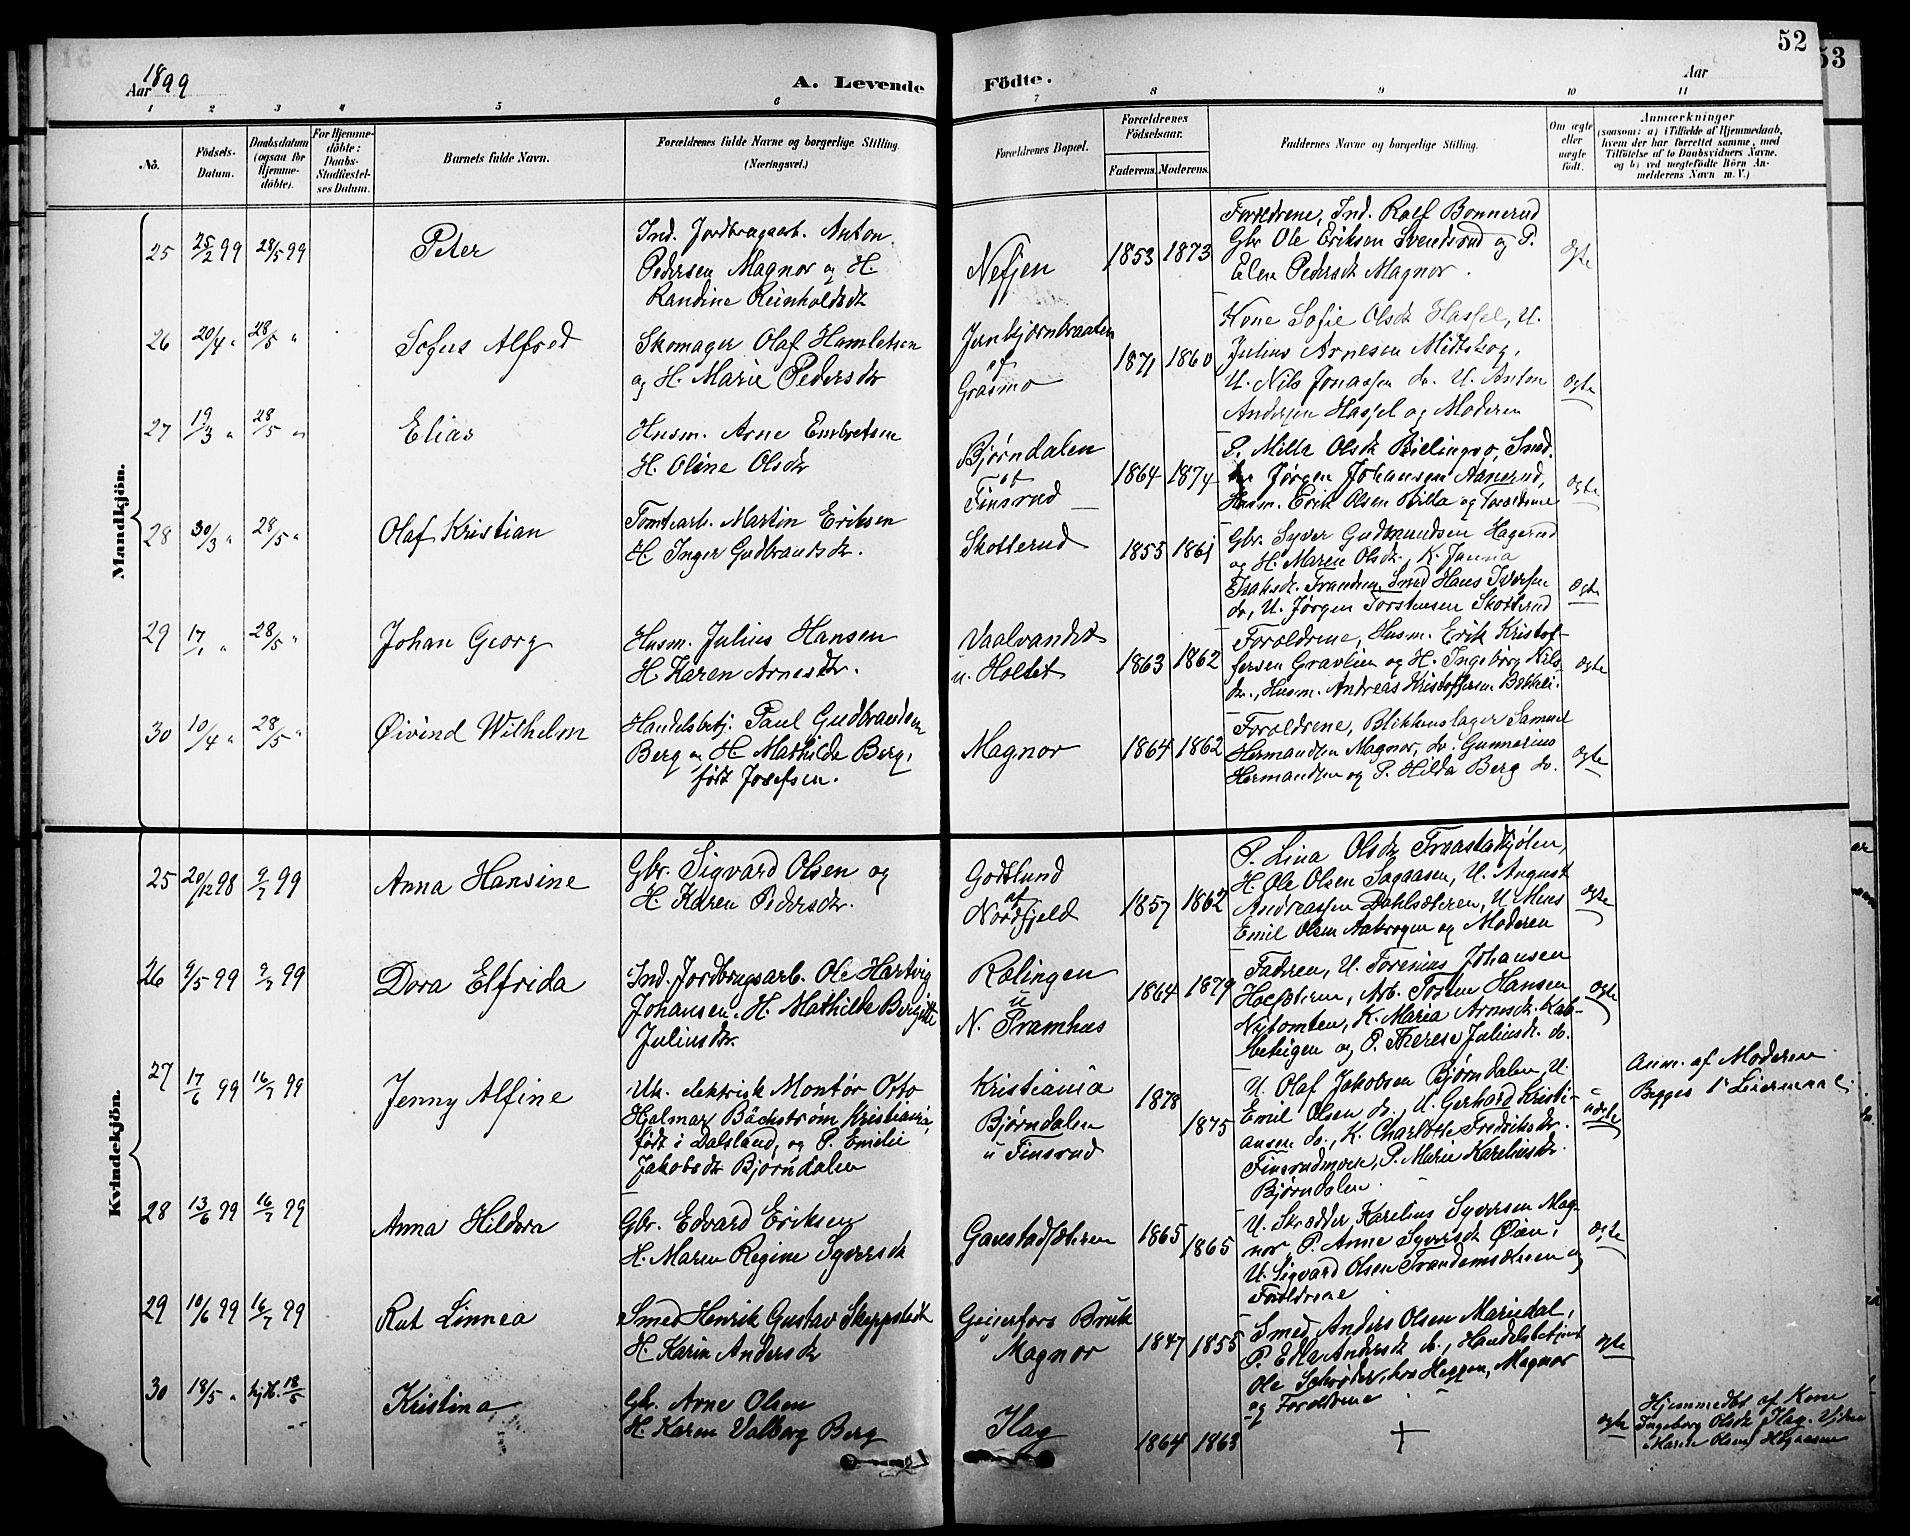 52
53
Aar 1899
A. Levende Födte.
Aar
1 2 3 4 5 6 7 8 9 10 11
No.
Födsels-
Datum.
Daabsdatum
(ogsaa for
Hjemme-
döbte).
For Hjemme-
döbte:
Daabs-
Stadfæstel-
ses Datum.
Barnets fulde Navn.
Forældrenes fulde Navne og borgerlige Stilling.
(Næringsvei.)
Forældrenes Bopæl.
Forældrenes
Födselsaar.
Faderens. Moderens.
Faddernes Navne og borgerlige Stilling.
Om ægte
eller
uægte
födt.
Anmærkninger
(saasom: a) i Tilfælde af Hjemmedaab,
hvem der har forrettet samme, med
Tilföielse af to Daabsvidners Navne,
og b) ved uægtefödte Börn An-
melderens Navn m. V.)
Mandkjön.
25 25/2 99 28/5 99 Peter
Ind. Jordbrugsarb. Anton
Pedersen Magnor og H.
Randine Reinholdsdr
1853 1873
Forældrene, Ind. Rolf Bonnerud
Gbr Ole Eriksen Svendsrud og P.
Elen Pedersdr Magnor.
ægte
26 20/4 " 28/5 " Sofus Alfred
Skomager Olaf Hamletsen
og H. Marie Pedersdr
Jernbjørnbraaten
af
Grasmo
1871 1860
Kone Sofie Olsdr Hassel, U.
Julius Arnesen Midtskog,
U. Nils Jonassen do. U. Anton
Andersen Hassel og Moderen
ægte
27 19/3 " 28/5 " Elias
Husm. Arne Embretsen
H. Oline Olsdr
Bjørndalen
af
Finsrud
1864 1874
P. Milla Olsdr Billingsø, Smed
Jørgen Johansen Aanerud,
Husm. Erik Olsen Billa og Forældrene
ægte
28 30/3 " 28/5 " Olaf Kristian
Tomtearb. Martin Eriksen
H. Inger Gudbrandsdr.
Skotterud
1855 1861
Gbr. Syver Gudmundsen Hagerud
og H. Maren Olsdr, K. Janna
Smed Hans Iversen
do, U. Jørgen Torstensen Skotterud
ægte
29 17/1 " 28/5 " Johan Georg
Husm. Julius Hansen
H. Karen Arnesdtr.
Vaalvandet
u. Holtet
1863 1862
Forældrene, Husm. Erik Kristof-
fersen Gravlien og H. Ingeborg Nils-
dr., Husm. Andreas Kristoffersen Bekkeli.
ægte
30 10/4 " 28/5 " Øivind Wilhelm
Handelsbetj. Paul Gudbrandsen
Berg og H Mathilde Berg,
født Josefsen.
Magnor
1864 1862
Forældrene, Blikkenslager Samuel
Hermandsen Magnor, do. Gunnerius
Hermandsen og P. Hilda Berg do.
ægte
Kvindekjön.
25 20/12 98 9/7 99 Anna Hansine
Gbr. Sigvard Olsen og
H. Karen Pedersdr.
Godslund
af
Nordfjeld
1857 1862
P. Lina Olsdr Fraastadkjølen,
H. Ole Olsen Sagaasen, U. August
Andreassen Dahlsæteren, U. Mens
Emil Olsen Aabrogen og Moderen
ægte
26 9/5 99 9/7 99 Dora Elfrida
Ind. Jordbrugsarb. Ole Hartvig
Johansen. H. Mathilde Birgitte
Juliusdr.
Rolingen
u
N. Pramhus
1864 1879
Faderen, U. Torenius Johansen
Arb. Hansen
Nytomten, K. Maria Arnesdr. Kab-
behigen og P. Therese Juliusdr. do.
ægte
27 17/6 99 16/7 99 Jenny Alfine
Uk. elektrisk Montør Otto
Hjalmar Bäckstrøm Kristiania,
født i Dalsland, og P. Emilie
Jakobsdr Bjørndalen
Kristiania
Bjørndalen
u Finsrud
1878
1875
U. Olaf Jakobsen Bjørndalen, U.
Emil Olsen do., U. Gerhard Kristi-
ansen do., K. Charlotte Fredriksdr.
Finsrudmoen, P. Marie Kareliusdr.
Bjørndalen.
uægte
Anm. af Moderen
Begges 1' Leiermaal.
28 13/6 99 16/7 99 Anna Hildora
Gbr. Edvard Eriksen
H. Maren Regine Syversdr
Gaustadsæteren
1865 1865
U. Skrædder Karelius Syversen Mag-
nor, P. Anne Syversdr Øien,
U. Sigvard Olsen Frandemsæteren og
Forældrene
ægte
29 10/6 99 16/7 99 Rut Linnea
Smed Henrik Gustav Skeppstedt
H. Karin Andersdr
Geijerfors Bruk
" Magnor
1847 1855
Smed Anders Olsen Mariedal,
P. Edla Andersdr do., Handelsbetjent
Ole Schrøder, hos Heggen, Magnor
og Forældrene
ægte
30 18/5 " hjd. 18/5 Kristina
Gbr. Arne Olsen
H. Karen Valborg Berg
Flag
1864 1863
+
ægte
Hjemmedøbt af Kone
Ingeborg Olsdr Flag. Vidner